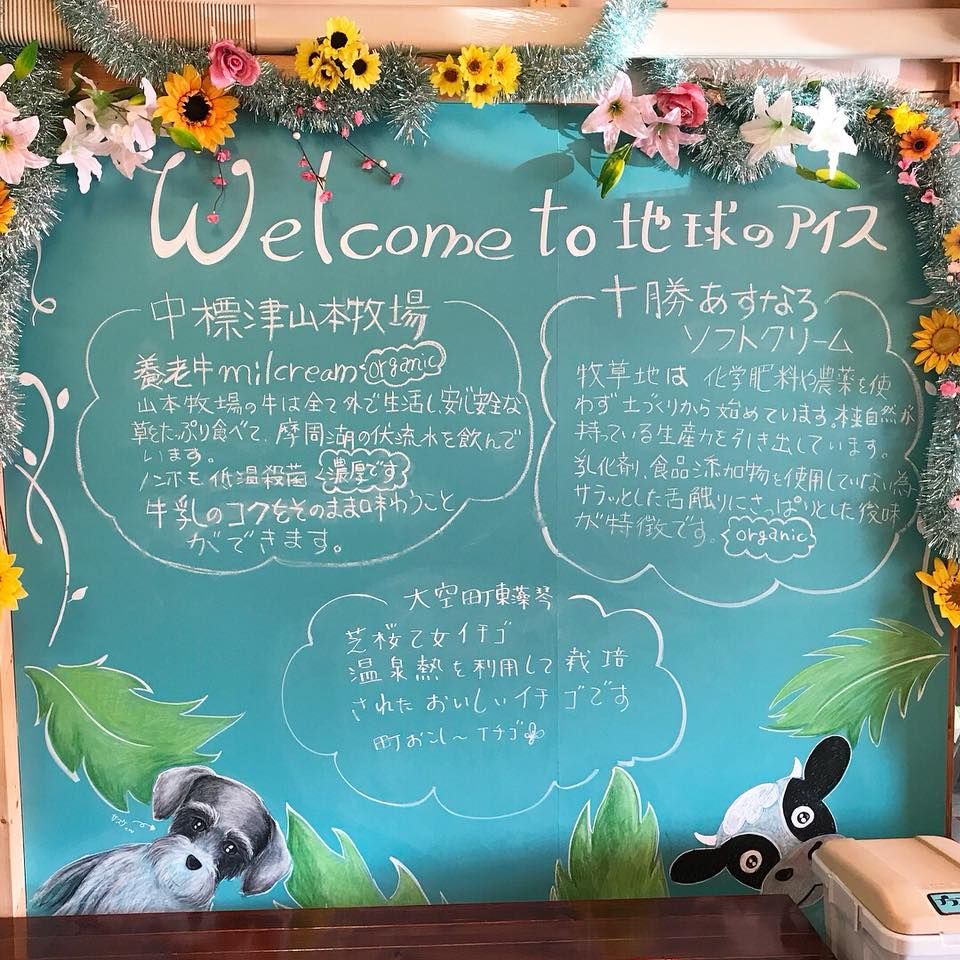 Welcome to 地球のアイス
中標津山本牧場
養老牛milcream organic
山本牧場の牛は全て外で生活し、安心安全な
草をたっぷり食べて、摩周湖の伏流水を飲んで
います。
ノンホモ低温殺菌 濃厚です
牛乳のコクをそのまま味わうこと
ができます。
十勝あすなろ
ソフトクリーム
牧草地は 化学肥料や農薬を使
わず土づくりから始めています。本来自然が
持っている生産力を引き出しています。
乳化剤、食品添加物を使用していない為
サラッとした舌触りにさっぱりとした後味
が特徴です。 organic
大空町東藻琴
芝桜乙女イチゴ
温泉熱を利用して栽培
されたおいしいイチゴです
町おこし〜イチゴ